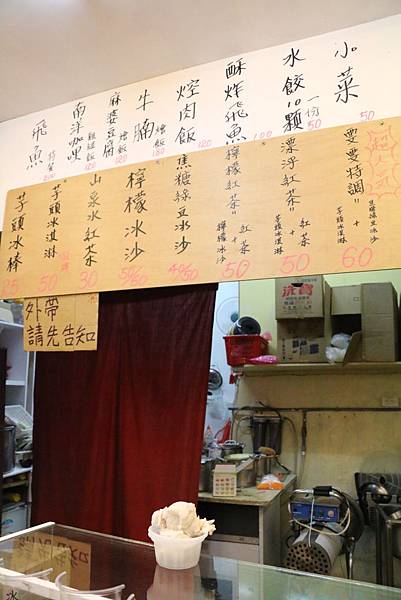 小菜 50
水餃10顆 一份 50
酥炸飛魚 100
焢肉飯 120
牛腩 燴飯 150
麻婆豆腐 燴飯 120
南洋咖哩 雞腿飯 120
飛魚 特餐 200
超人氣
雯雯特調= 芋頭冰淇淋 + 焦糖綠豆冰沙 60
漂浮紅茶= 紅茶 + 芋頭冰淇淋 50
檸檬紅茶= 紅茶 + 檸檬冰沙 50
焦糖綠豆冰沙 50
檸檬冰沙 50
山泉水紅茶 30
芋頭冰淇淋 50
芋頭冰棒 25
外帶
請先告知